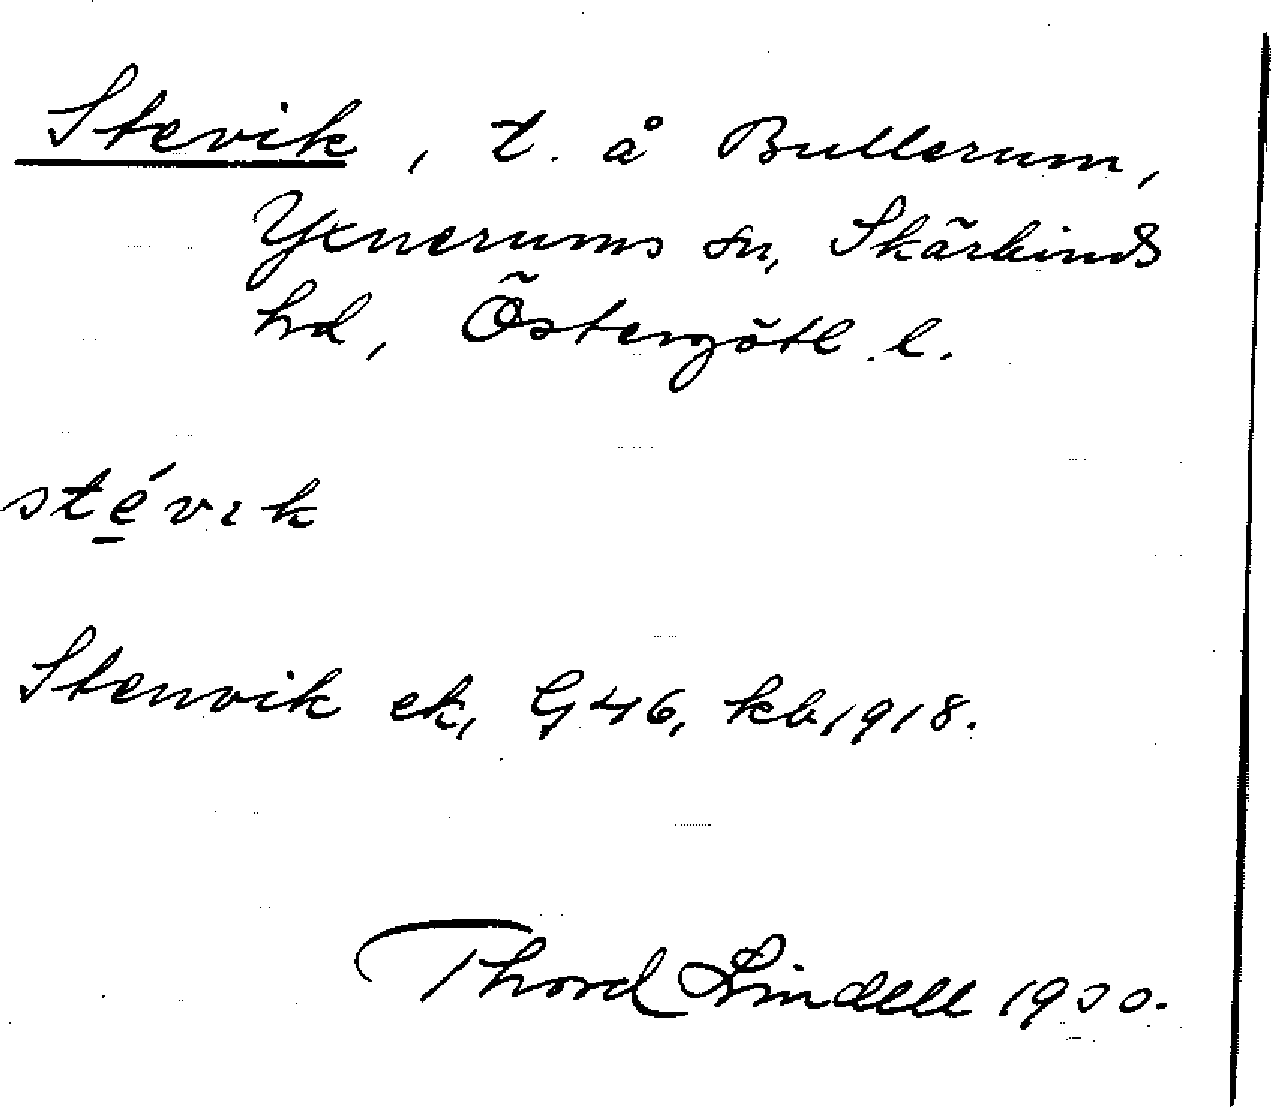 Stevik, t. å Bullerum,
Yxnerums sn, Skärkinds
hd, Östergötl. l.
stévık
Stenvik ek, G 46, kb 1918.
Thord Lindell 1930.